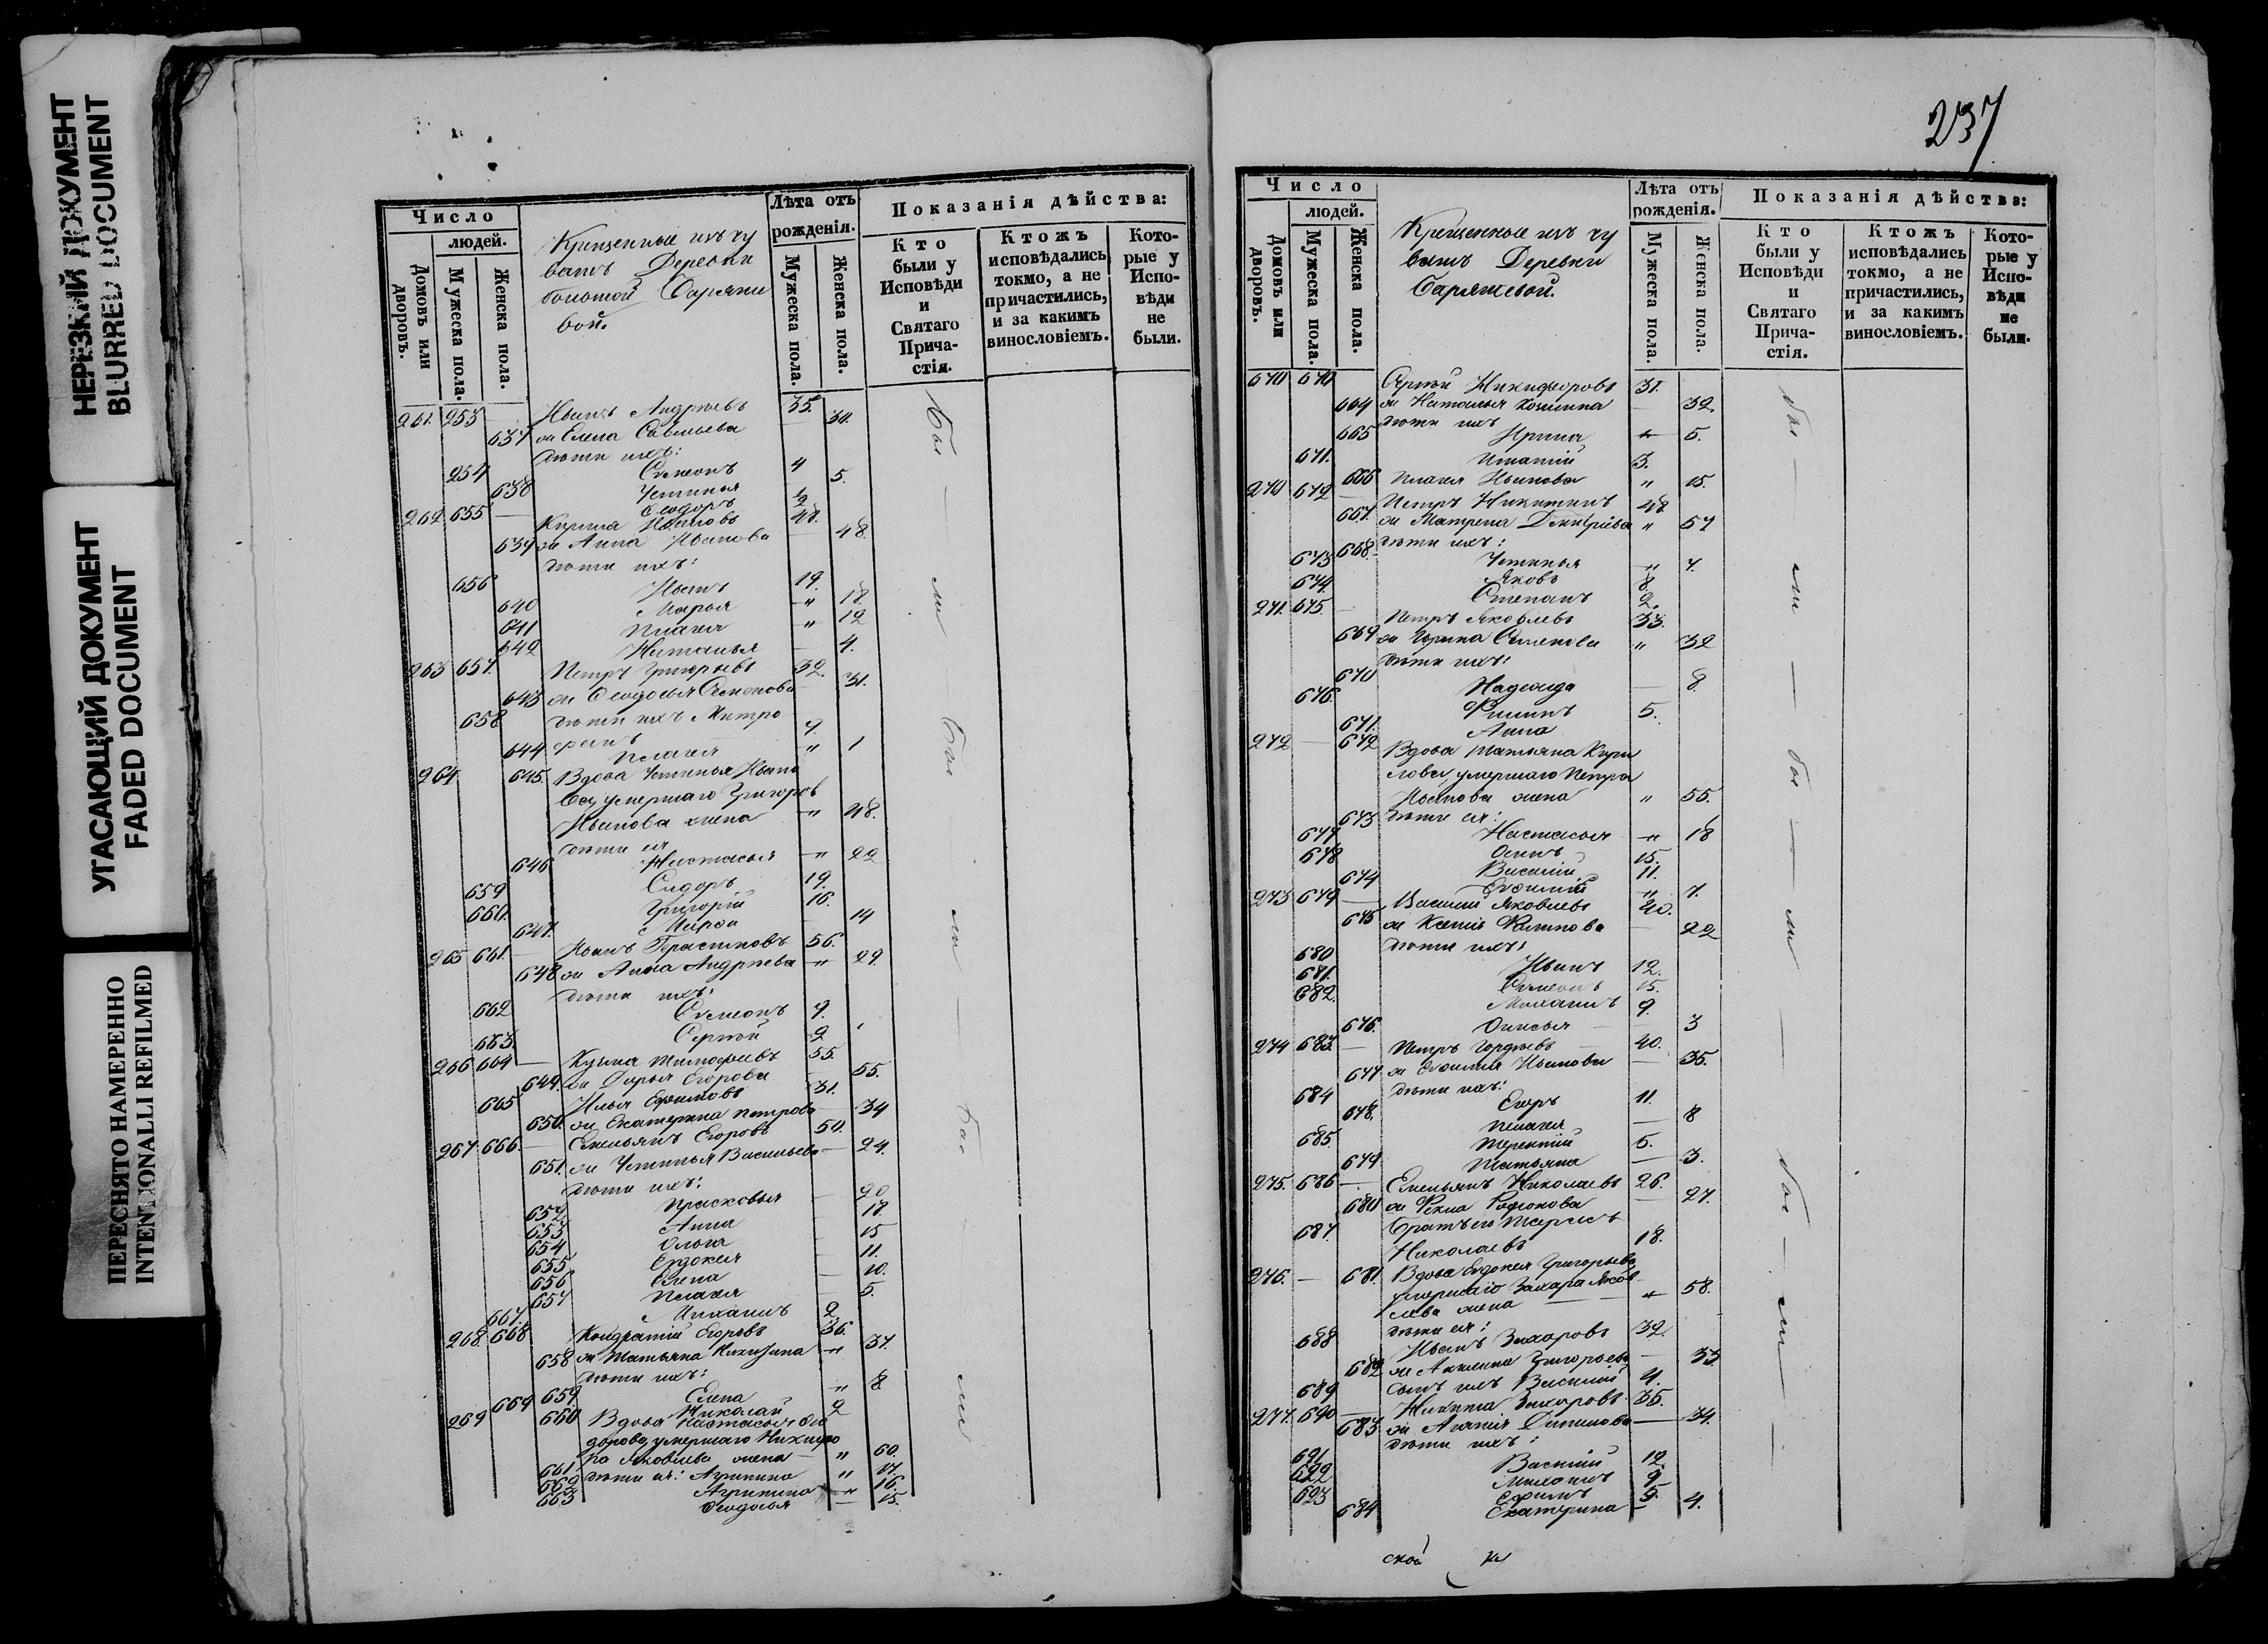 НЕРЕЗКИЙ ДОКУМЕНТ
BLURRED DOCUMENT
УГАСАЮЩИЙ ДОКУМЕНТ
FADED DOCUMENT
ПЕРЕСНЯТО НАМЕРЕННО
INTENTIONALLI REFILMED
Число
людей.
Домовъ или дворовъ.
Мужеска пола.
Женска пола.
Крещенные изъ чу
вашъ Деревни
большой
вой.
Лѣта отъ
рожденія.
Мужеска пола.
Женска пола.
Показанія дѣйства:
Кто
были у
Исповѣди
и
Святаго
Прича-
стія.
Ктожъ
исповѣдались
токмо, а не
причастились,
и за какимъ
винословіемъ.
Кото-
рые у
Испо-
вѣди
не
были.
261. 253 Иванъ Андреевъ 35.
637 ж Елена Савельева
дѣти ихъ:
254 Семеонъ 4
638 Устинья 5.
Ѳеодоръ
262 655 Ивановъ 48.
639 ж Анна Иванова 48
дѣти ихъ:
656 Иванъ 19.
640 Марья " 18.
641 Пелагея " 12
642 Наталья 4.
263 657. Петръ Григорьевъ 32.
643 ж Ѳеодосья Семенова 31.
658 дѣти ихъ Митро
фанъ 9.
644 Пелагея " 1
264 645. Вдова Устинья Ивано
ва, умершаго Григорья
Иванова жена " 48.
дѣти ея
646 Настасья " 22
659 Сидоръ 19.
660. Григорій 16.
647. Марѳа 14
265 661. Иванъ Герасимовъ 56.
648 ж Анна Андреева " 29.
дѣти ихъ:
662 Семеонъ 9.
663. Сергѣй 2
266 664 Кузьма Тимофеевъ 55.
649. ж Дарья Егорова 55.
665 Илья Ефимовъ 31.
650. ж Екатерина Петрова 34
267. 666. Емельянъ Егоровъ 50.
651. ж Устинья Васильева
дѣти ихъ:
652 Прасковья 20
653 Анна 18.
654 Ольга 15
655 Евдокея 11.
656 Елена 10.
657 Пелагея 5.
667. Михаилъ 2
268. 668 Кондратій Егоровъ 36.
658 ж Татьяна Никитина " 37.
дѣти ихъ:
659 Елена " 8
669 Николай 2
269 660 Вдова Настасья Ѳео
дорова, умершаго Никифо
ра Яковлева жена " 60.
661 дѣти ея: Агрипина " 17.
662 Агрипина " 16.
663 Ѳеодосья 15.
237
Число
людей.
Домовъ или дворовъ.
Мужеска пола.
Женска пола.
Крещенные изъ чу
вашъ Деревни
Лѣта отъ
рожденія.
Мужеска пола.
Женска пола.
Показанія дѣйства:
Кто
были у
Исповѣди
и
Святаго
Прича-
стія.
Ктожъ
исповѣдались
токмо, а не
причастились,
и за какимъ
винословіемъ.
Кото-
рые у
Испо-
вѣди
не
были.
670 670 Сергѣй Никифоровъ 31.
664 ж Наталья Козмина 32.
дѣти ихъ
665 Ирина 5.
671. Игнатій 3.
666 Пелагея Иванова " 15.
270 672 Петръ Никитинъ 48
667. ж Матрена Дмитріева " 57
дѣти ихъ:
668 Устинья " 7.
673 Яковъ 8
674 Степанъ 2.
271. 675 Петръ Яковлевъ 33.
669 ж Ирина Семенова " 32
дѣти ихъ:
670 Надежда 8.
676. Филипъ 5.
671. Анна
272 672 Вдова Татьяна Кири
лова, умершаго Петра
Иванова жена " 55.
дѣти ея:
673 Настасья " 18
677 Осипъ 15.
678 Василій 11.
674 " 7.
273 679 Василій Яковлевъ 40.
675 ж Ксенія Филипова 22
дѣти ихъ:
680 Иванъ 12.
681. Семеонъ 15.
682. Михаилъ 9.
676. Анисья 3
274 683. Петръ Гордеевъ 40.
677 ж Евфимія Иванова 35.
дѣти ихъ:
684 Егоръ 11.
678. Пелагея 8
685. Терентій 5.
679 Татьяна 3.
275. 686 Емельянъ Николаевъ 26.
680 ж Фекла Родионова 27.
687. братъ его
Николаевъ 18.
276. 681. Вдова Евдокея Григорьева
умершаго Захара Яков
лева жена " 58.
дѣти ея:
688 Иванъ Захаровъ 32.
682 ж Акилина Григорьева 33
689 сынъ ихъ Василій 4.
277. 690 Никита Захаровъ 35.
683 ж Агапія Данилова 34.
дѣти ихъ:
691 Василій 12.
692 Михаилъ 9.
693 Ефимъ 5.
684 Екатерина 4.
ской